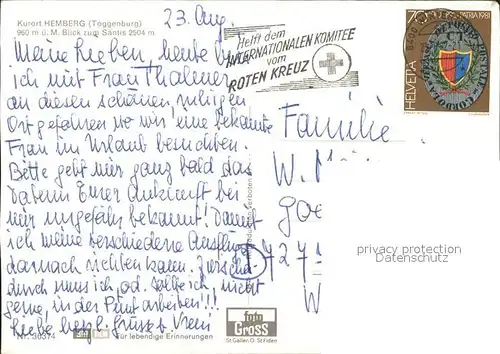 Kurort HEMBERG (Toggenburg)
960 m ü. M. Blick zum Säntis 2504 m
23. Aug.
Helft dem
INTERNATIONALEN KOMITEE
vom
ROTEN KREUZ
70
PATRIA 1981
HELVETIA
Meine Lieben, heute bin
ich mit Frau Thalener
an diesen schönen ruhigen
Ort gefahren wo wir eine bekannte
Frau im Urlaub besuchten.
Bitte gebt mir ganz bald das
Datum Eurer Ankunft bei
mir ungefähr bekannt! Damit
ich meine verschiedene Ausflüge
darnach richten kann.
durch muss ich, od. sollte ich, nicht
gerne, in der Front arbeiten!!!
Liebe herzl. Grüsse v. Vreni
Familie
W.
727
W
privacy protection
Datenschutz
Nr. 36374
Für lebendige Erinnerungen
foto
Gross
St. Gallen O St. Fiden